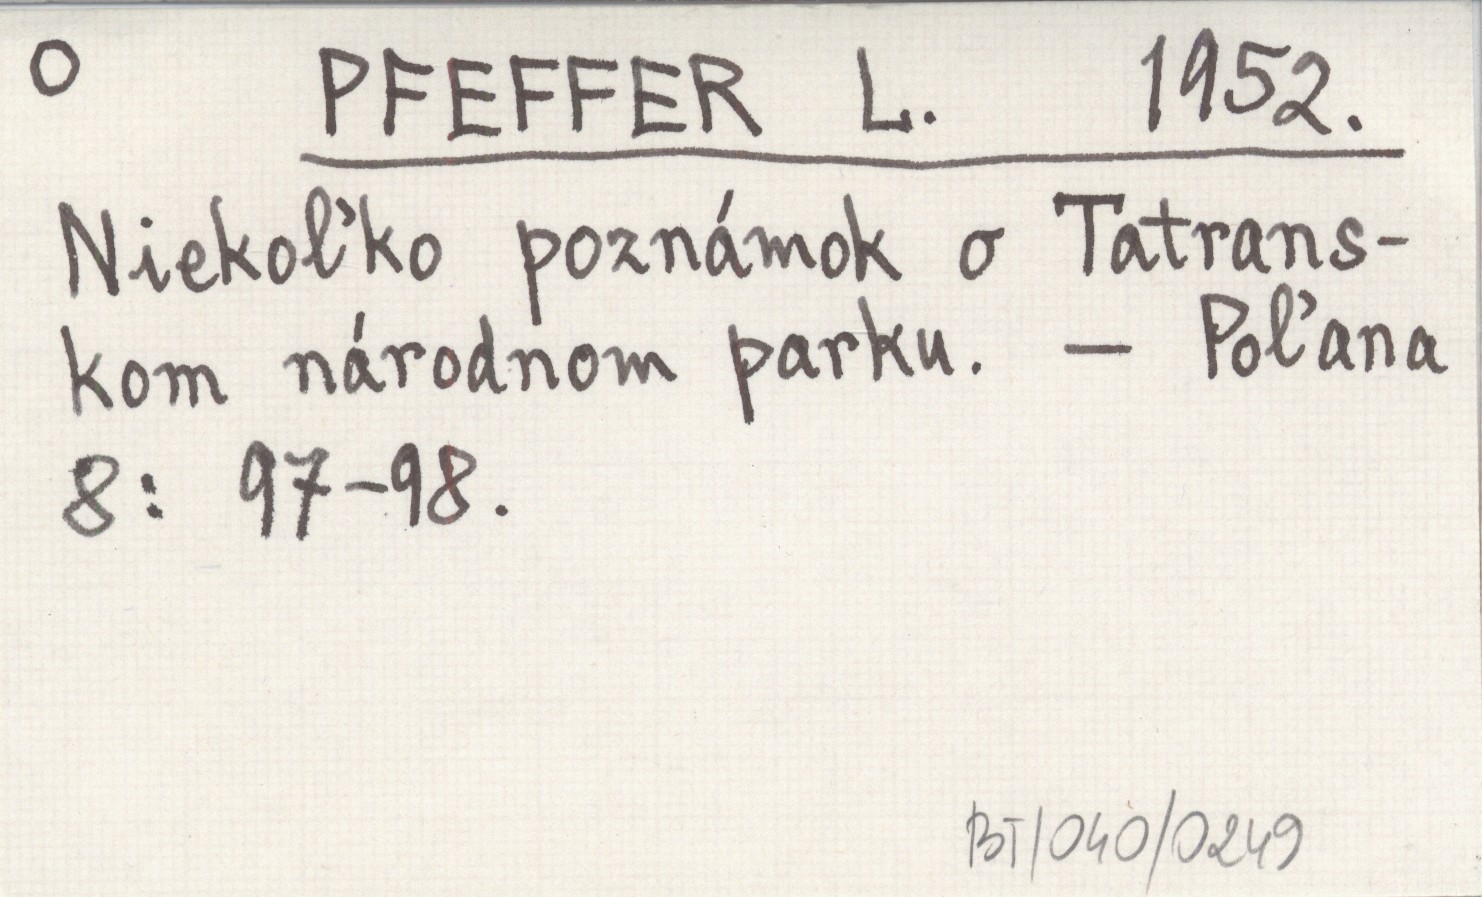 O PFEFFER L. 1952.
Niekoľko poznámok o Tatrans-
kom národnom parku. — Poľana
8: 97-98.
BT/040/0249